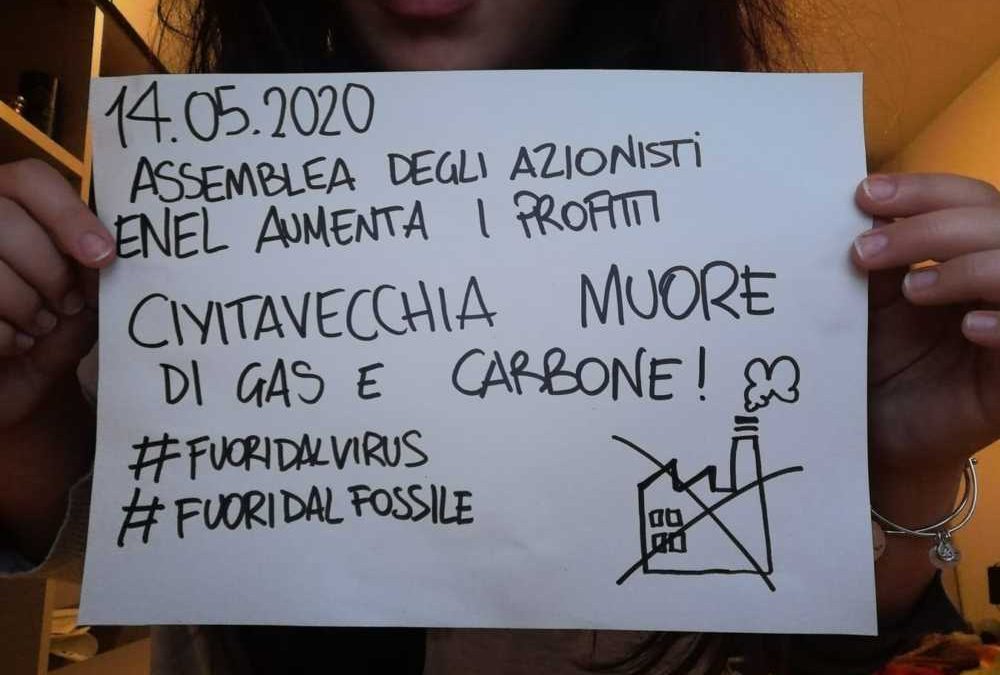 14.05.2020
ASSEMBLEA DEGLI AZIONISTI
ENEL AUMENTA I PROFITTI
CIVITAVECCHIA MUORE
DI GAS E CARBONE!
#FUORIDALVIRUS
#FUORIDALFOSSILE